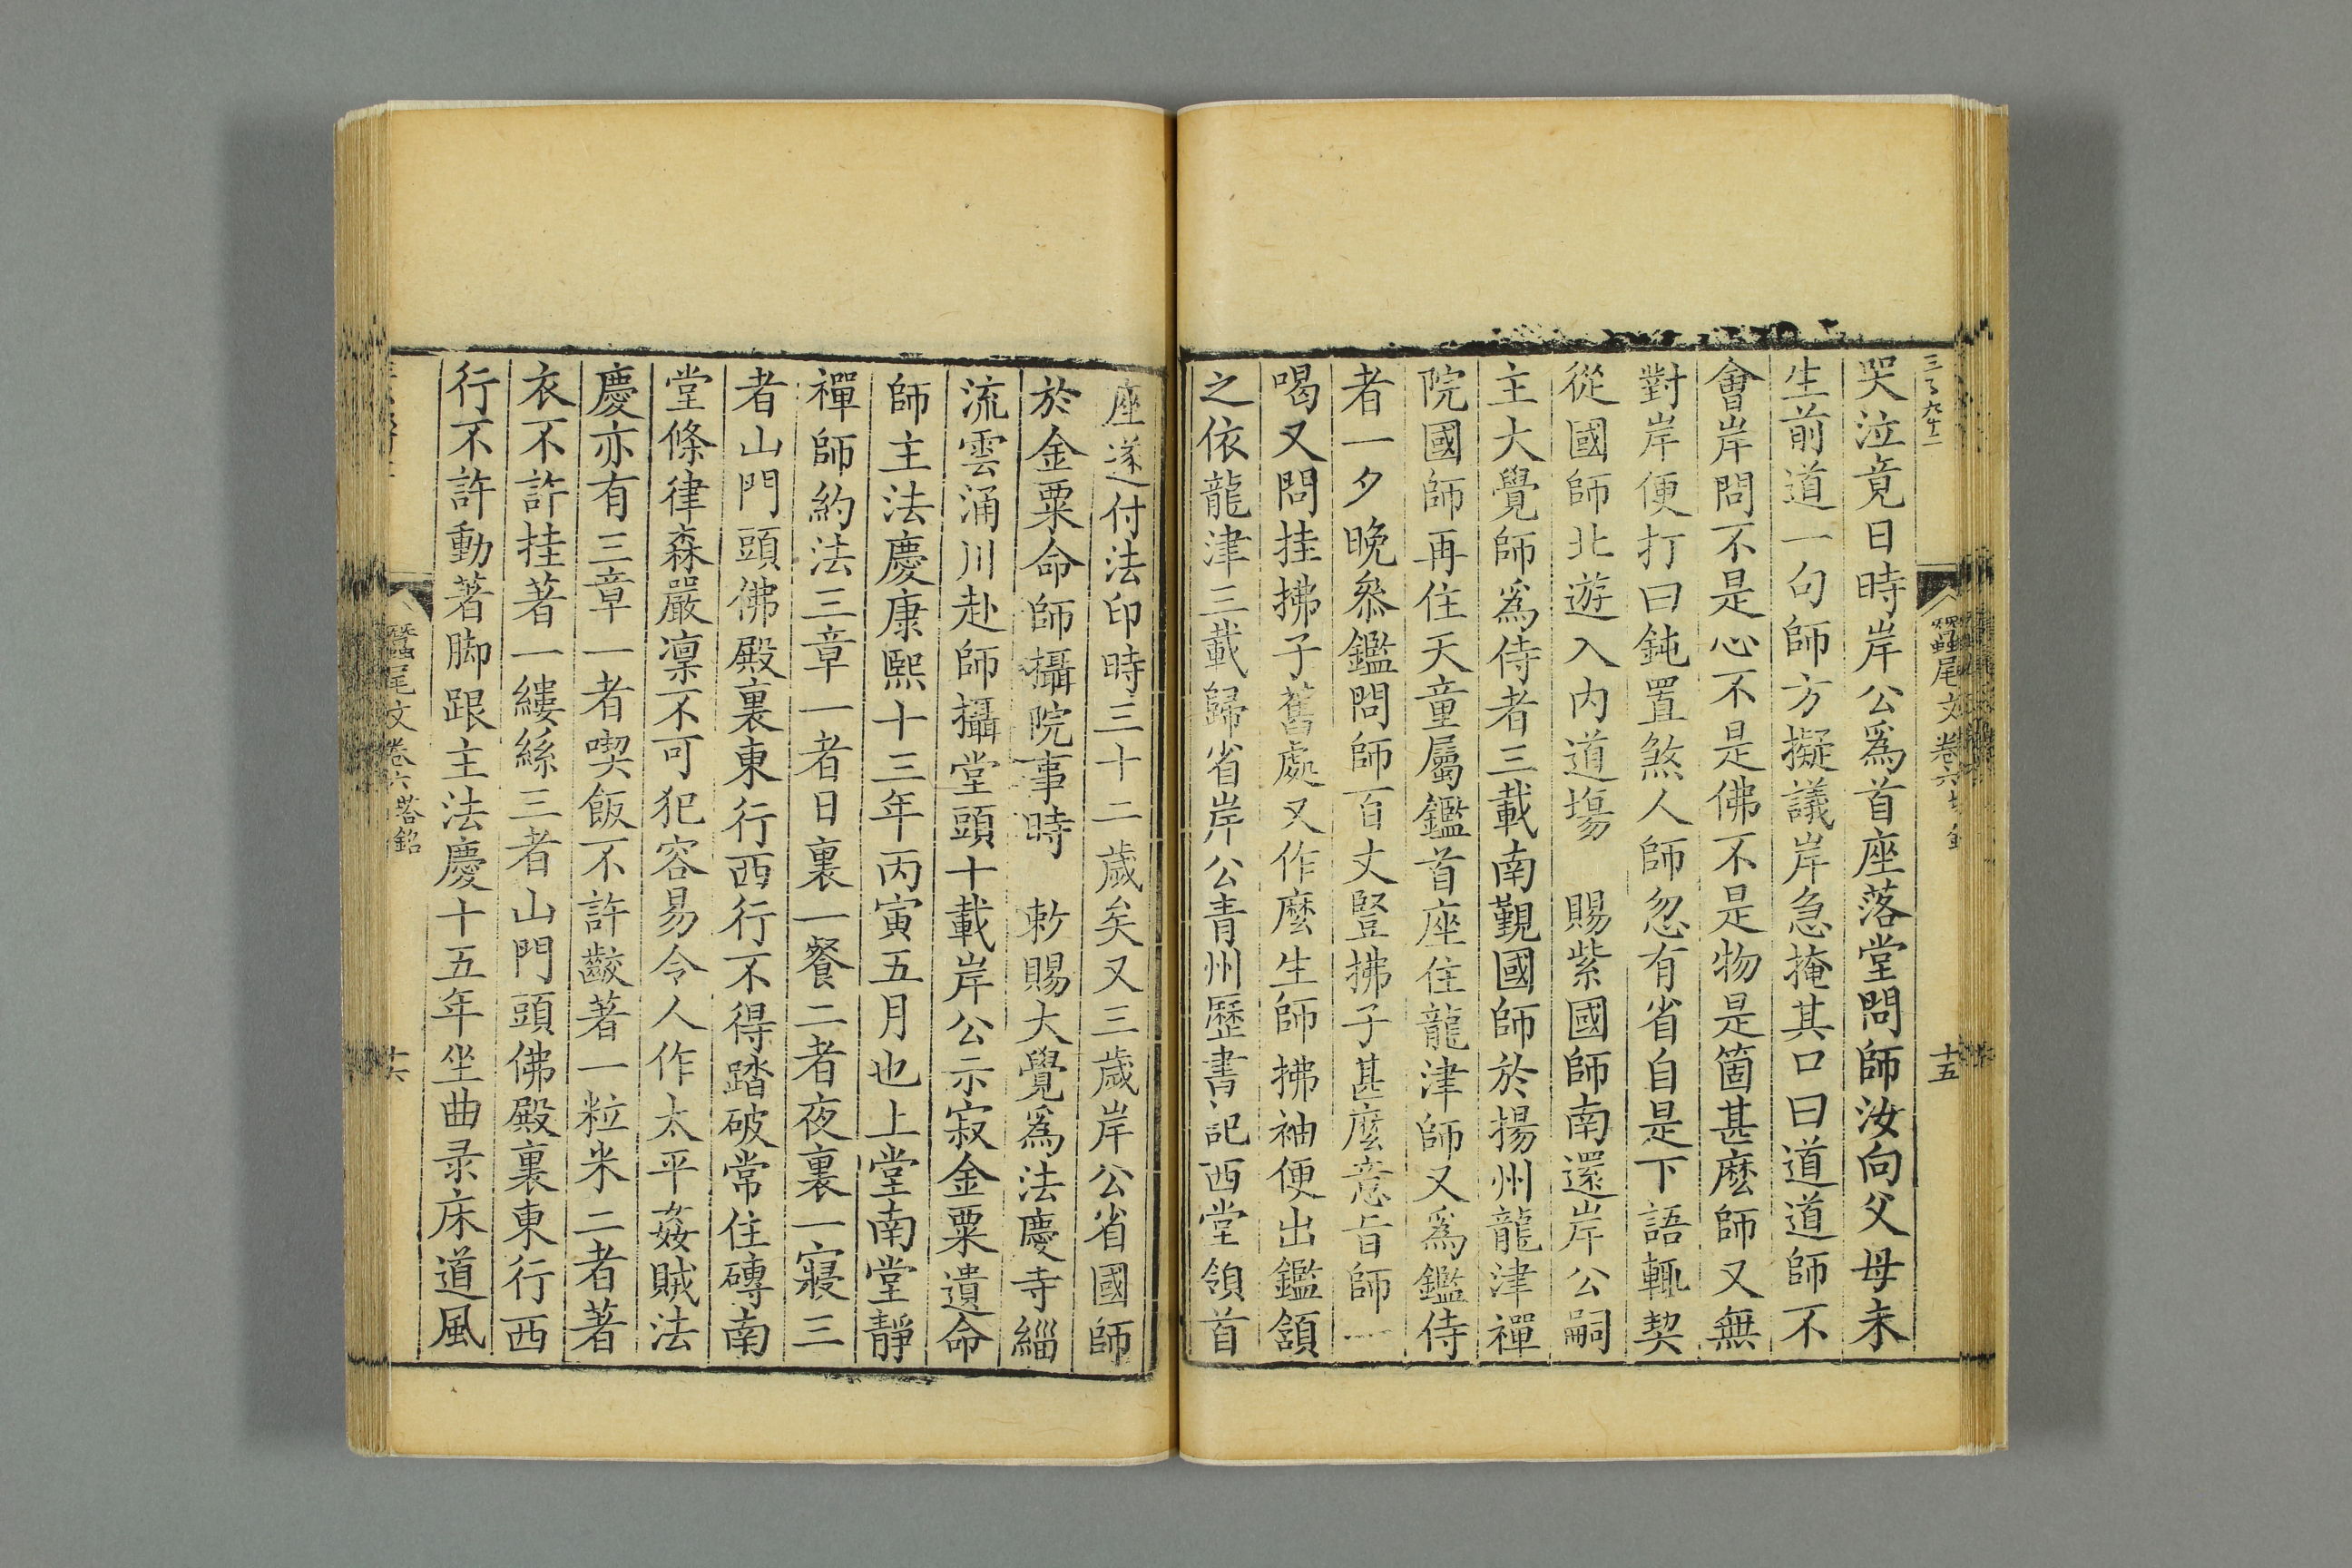 哭泣竟日時岸公爲首座落堂問師汝向父母未
生前道一句師方擬議岸急掩其口曰道道師不
會岸問不是心不是佛不是物是箇甚麽師又無
對岸便打曰鈍置煞人師忽有省自是下語輒契
從國師北遊入内道塲　賜紫國師南還岸公嗣
主大覺師爲侍者三載南覲國師於揚州龍津禪
院國師再住天童屬鑑首座住龍津師又爲鑑侍
者一夕晚叅鑑問師百丈豎拂子甚麽意旨師一
喝又問挂拂子舊處又作麽生師拂袖便出鑑頷
之依龍津三載歸省岸公青州歷書記西堂領首
蠶尾文卷六
十五
座遂付法印時三十二歲矣又三歲岸公省國師
於金粟命師攝院事時　敕賜大覺爲法慶寺緇
流雲涌川赴師攝堂頭十載岸公示寂金粟遺命
師主法慶康熙十三年丙寅五月也上堂南堂靜
禪師約法三章一者日裏一餐二者夜裏一寢三
者山門頭佛殿裏東行西行不得踏破常住磚南
堂條律森嚴凜不可犯容易令人作太平姦賊法
慶亦有三章一者喫飯不許齩著一粒米二者著
衣不許挂著一縷絲三者山門頭佛殿裏東行西
行不許動著脚跟主法慶十五年坐曲录床道風
蠶尾文卷六 塔銘
十六